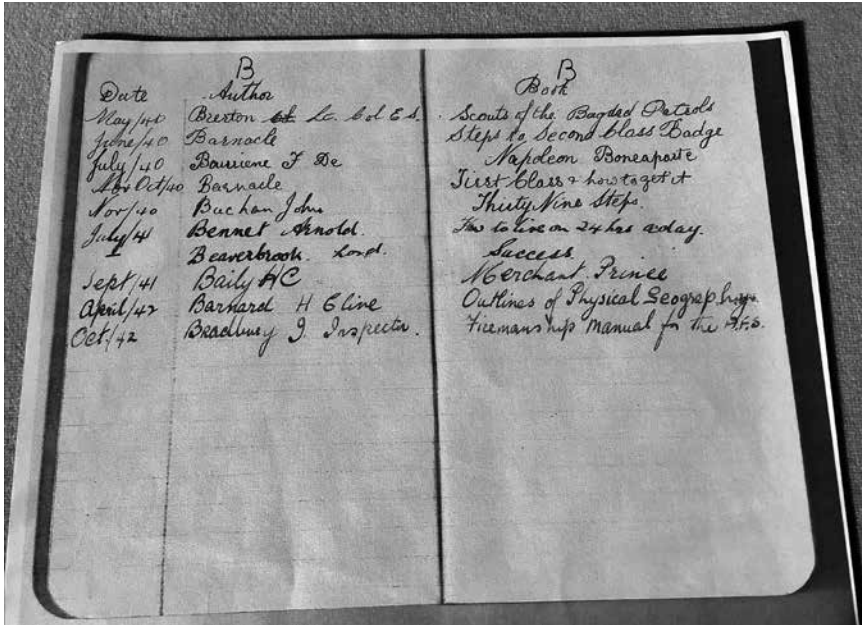 B B
Date Author Book
May/40 Brerton Lt. Col E S. Scouts of the Bagdad Patrols
June/40 Barnacle Steps to Second Class Badge
July/40 Bourriene F De Napoleon Boneaparte
Oct/40 Barnacle First Class & how to get it
Nov/40 Buchan John Thirty Nine Steps.
July/41 Bennet Arnold. How to live on 24 hrs a day.
Beaverbrook. Lord. Success.
Sept/41 Baily HC Merchant Prince
April/42 Barnard H Clive Outlines of Physical Geography.
Oct/42 Bradbury J. Inspector. Firemanship Manual for the A.F.S.